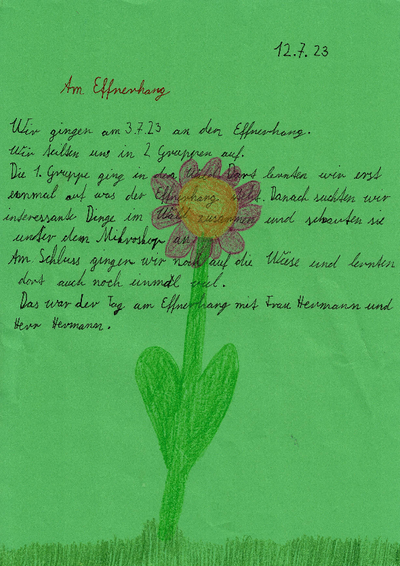 12.7.23
Am Effnerhang
Wir gingen am 3.7.23 an den Effnerhang.
Wir teilten uns in 2 Gruppen auf.
Die 1. Gruppe ging in den Wald. Dort lernten wir erst
einmal auf was der Effnerhang ist. Danach suchten wir
interessante Dinge im Wald zusammen und schauten sie
unter dem Mikroskop an.
Am Schluss gingen wir noch auf die Wiese und lernten
dort auch noch unmal viel.
Das war der Tag am Effnerhang mit Frau Hermann und
Herr Hermann.